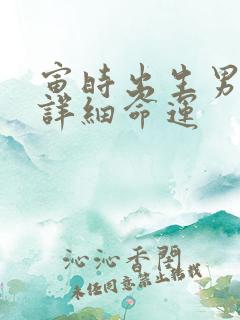 寅時出生男
詳細命運
沁沁香閣
未经同意禁止转载